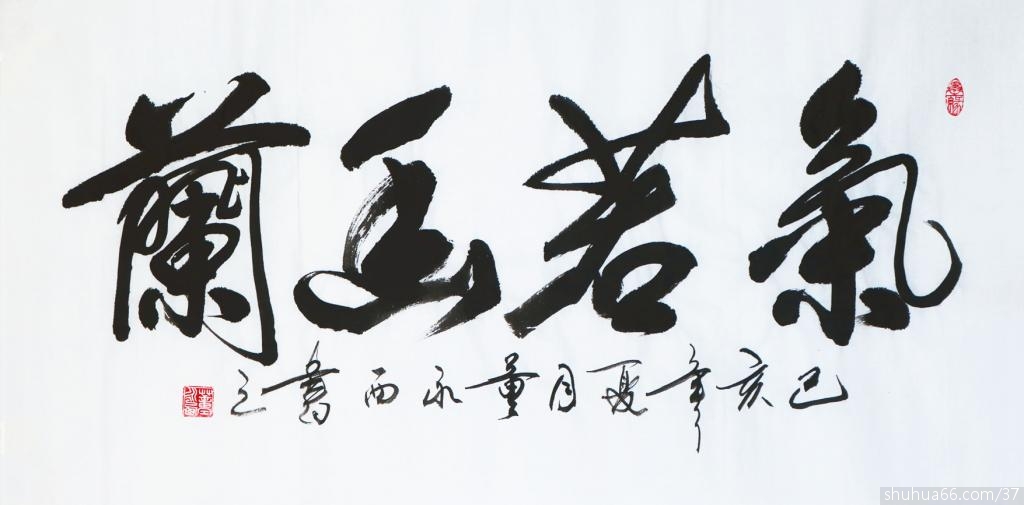 氣若幽蘭
己亥年夏月董永西書之
shuhua66.com/37